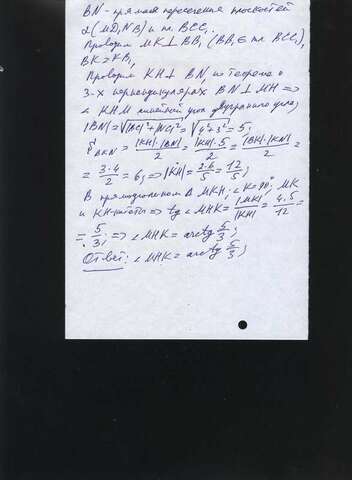 BN - прямая пересечения плоскостей
α(MD₁NB) и пл. BCC₁.
Проводим MK⊥BB₁ (BB₁ ∈ пл. BCC₁),
BK = KB₁
Проводим KH⊥BN, из теорема о
3-х перпендикулярах BN⊥MH =>
∠KHM линейный угол двугранного угла;
|BN| = √|BC|²+|NC|² = √4²+3² = 5;
S BKN = |KH|·|BN|/2 = |KH|·5/2 = |BK|·|KN|/2 =
= 3·4/2 = 6; => |KH| = 2·6/5 = 12/5;
В прямоугольном Δ MKH, ∠K = 90°, MK
и KH - катеты => tg ∠MHK = |MK|/|KH| = 4·5/12 =
= 5/3; => ∠MHK = arctg 5/3;
Ответ: ∠MHK = arctg 5/3;